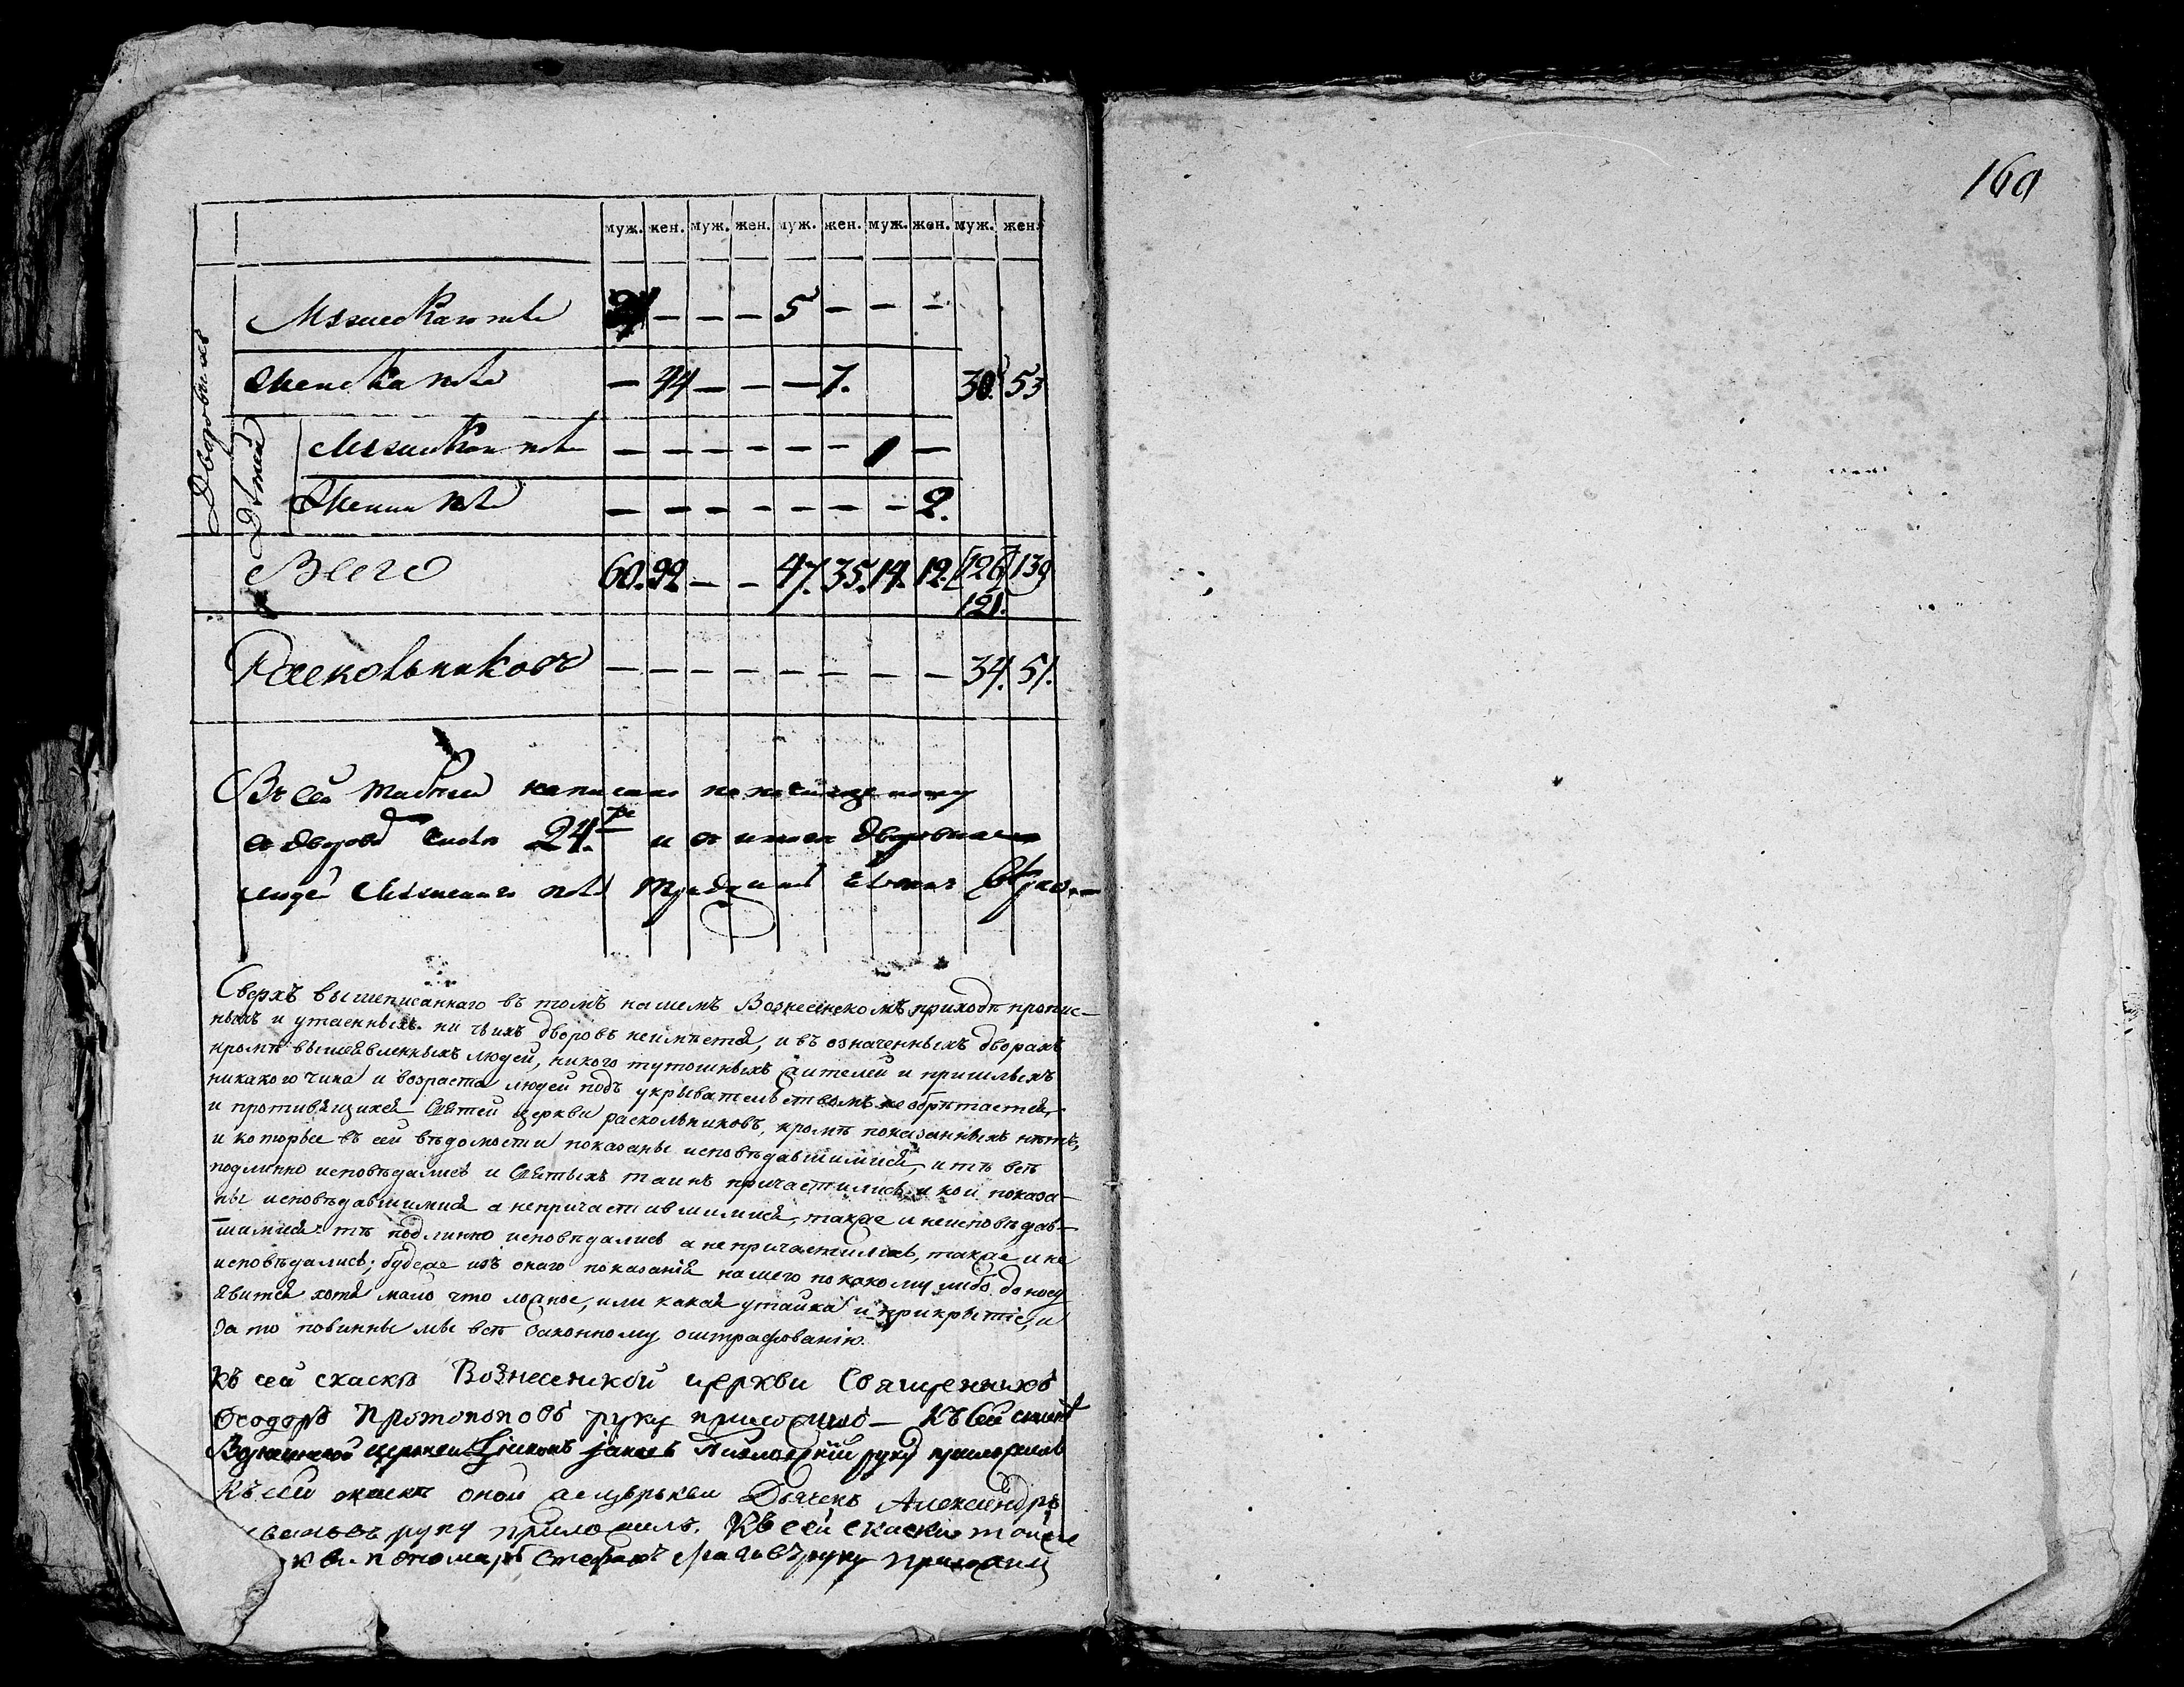 160
муж. жен. муж. жен. муж. жен. муж. жен. муж. жен.
Дворовыхъ
Мꙋжеска полꙋ — — — 5 — — —
Женска полꙋ — 44 — — — 7. 30. 53
Дѣтей
Мꙋжеска полꙋ — — — — — — 1 —
Женска полꙋ — — — — — — — 2.
Всего 60. 92 — — 47. 35. 14. 12. [126] 139
121.
Раскольниковъ — — — — — — — — 34. 51.
Въ сей табели написано
о дворовъ число 24. и о дворовыхъ
людей мꙋжеска полꙋ
Сверхъ вышеписаннаго въ томъ нашемъ Вознесенскомъ приходѣ пропис-
ныхъ и утаенныхъ ни чьихъ дворовъ неимѣется, и въ означенныхъ дворахъ
кромѣ вышеявленныхъ людей, никого тутошныхъ жителей и пришлыхъ
никакого чина и возраста людей подъ укрывательствомъ не обрѣтается,
и противящихся Святей церкви раскольниковъ, кромѣ показанныхъ нѣтъ,
и которые въ сей вѣдомости показаны исповѣдавшимися, и тѣ всѣ
подлинно исповѣдались и Святыхъ таинъ причастились, и кои показа-
ны исповѣдавшимися а непричастившимися, также и неисповѣдав-
шимися тѣ подлинно исповѣдались а не причастились, также и не
исповѣдались; будеже изъ онаго показанія нашего по какому либо доносу
явится хотя мало что ложное, или какая утайка и прикрытіе, и
за то повинны мы всѣ законному оштрафованію.
Къ сей скаскѣ Вознесенской церкви Священникъ
Ѳеодоръ Протопоповъ руку приложилъ — Къ сей скаскѣ
Вознесенской церкви Діаконъ руку приложилъ
Къ сей скаскѣ оной же церькви Дьячекъ Александръ
вановъ руку приложилъ. Къ сей скаски тойже
кви пономарь Стефанъ руку приложилъ